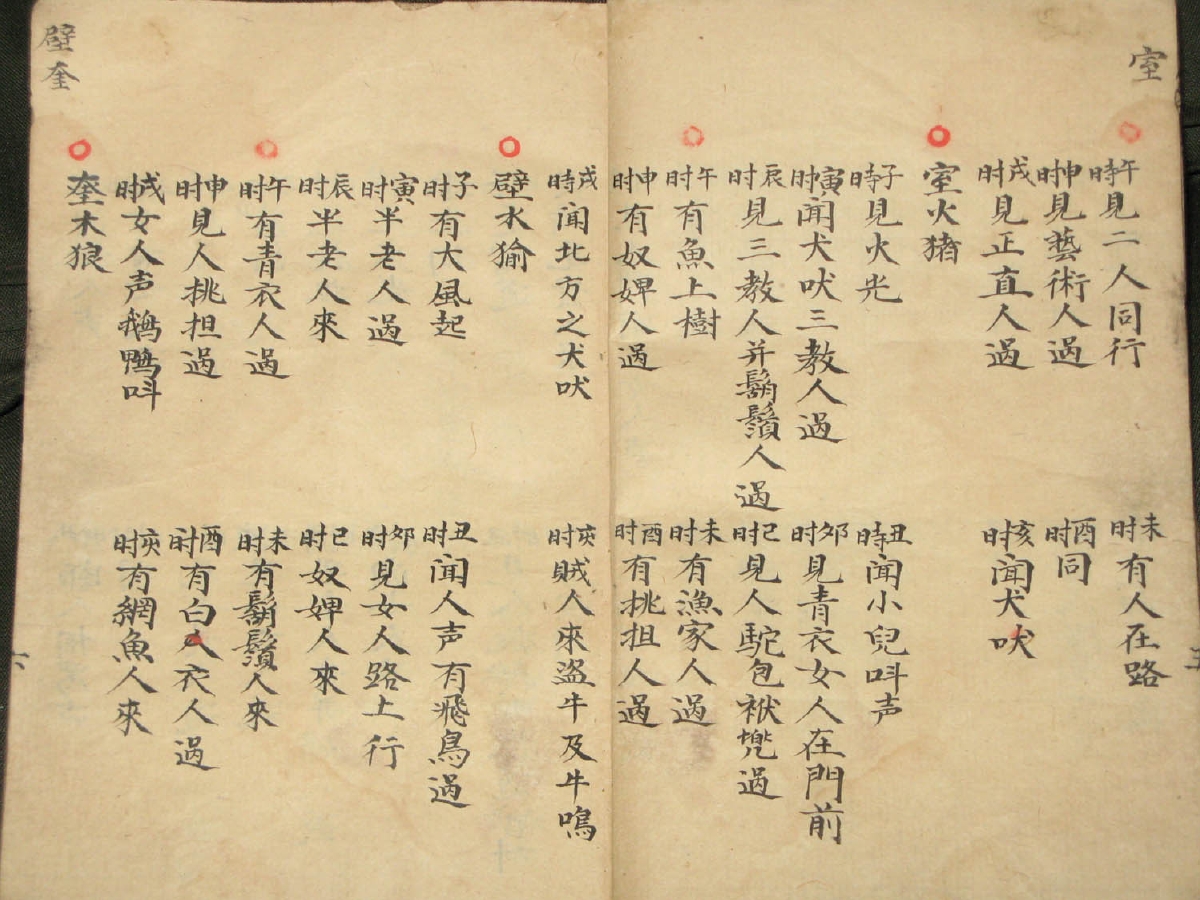 室
午時見二人同行 未时有人在路
申时見藝術人過 酉时同
戌时見正直人過 亥时闻犬吠
室火猪
子時見火光 丑時闻小兒呌声
寅时闻犬吠三教人過 卯时見青衣女人在門前
辰时見三教人并鬍鬚人過 巳时見人駝包袱
午时有魚上樹 未时有漁家人過
申时有奴婢人過 酉时有挑担人過
戌時闻北方之犬吠 亥时賊人來盜牛及牛鳴
壁水㺄
子时有大風起 丑时闻人声有飛鳥過
寅时半老人過 卯时見女人路上行
辰时半老人來 巳时奴婢人來
午时有青衣人過 未时有鬍鬚人來
申时見人挑担過 酉时有白衣人過
戌时女人声鵝鴨呌 亥时有網魚人來
奎木狼
壁奎
六